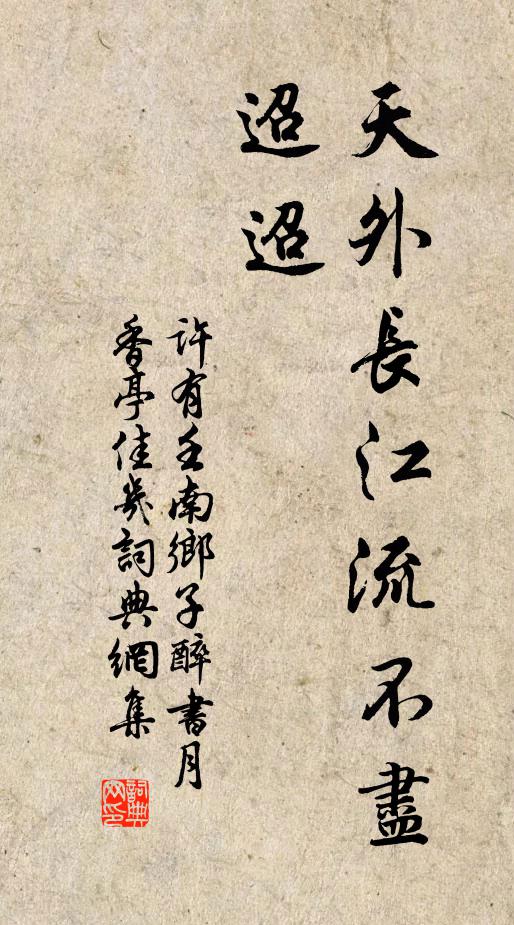 天外長江流不盡
迢迢
許有壬南鄉子醉書月
香亭佳戔詞典網集
詞典
网印